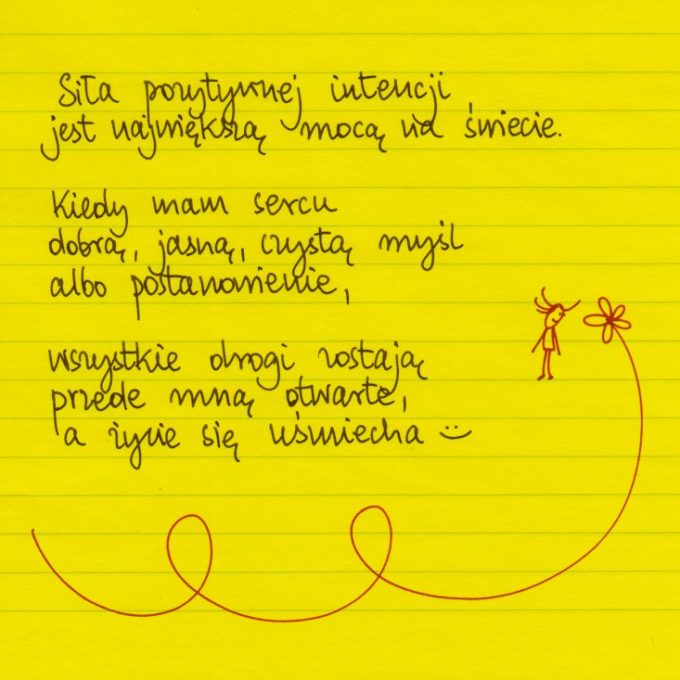 Siła pozytywnej intencji
jest największą mocą na świecie.
Kiedy mam sercu
dobrą, jasną, czystą myśl
albo postanowienie,
wszystkie drogi zostają
przede mną otwarte,
a życie się uśmiecha :)